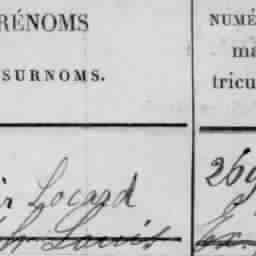 RÉNOMS
SURNOMS.
NUMÉ
ma
tricu
Locard
Louis
269